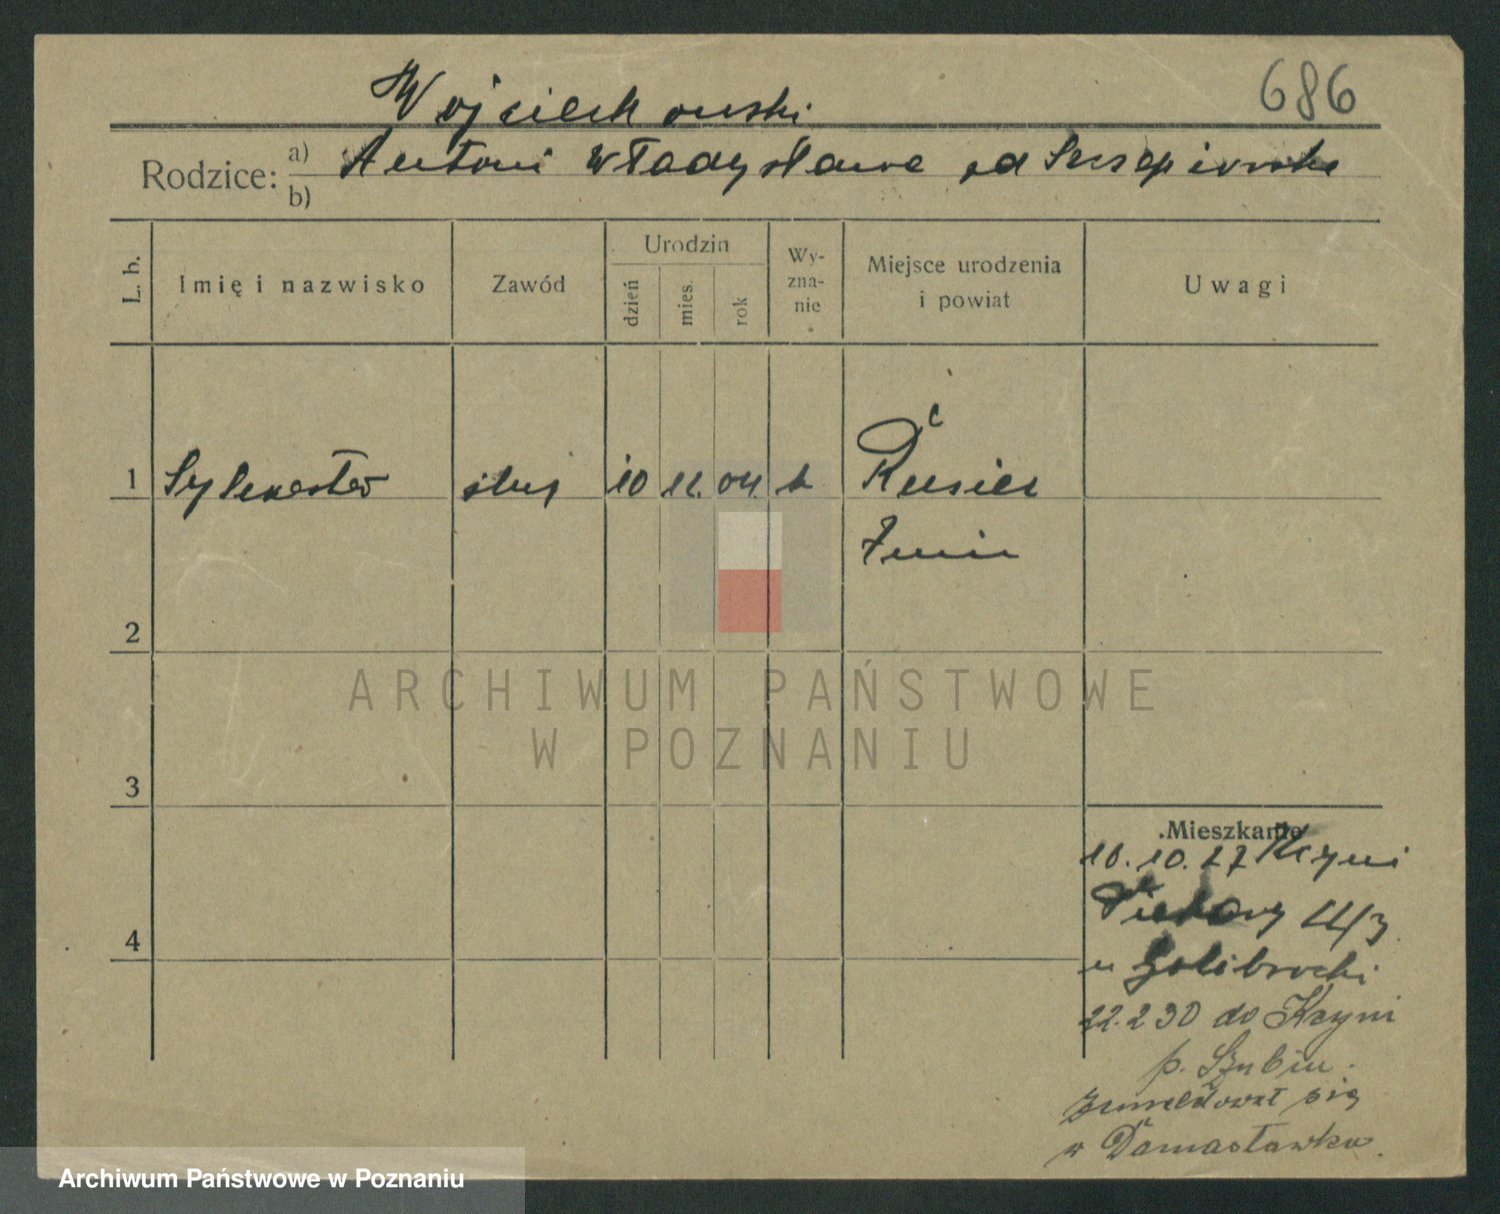 Wojciechowski
686
Rodzice: a) Antoni Władysława
b)
L. b.
Imię i nazwisko
Zawód
Urodzin
dzień
mies.
rok
Wy-
zna-
nie
Miejsce urodzenia
i powiat
Uwagi
1 Sylwester ślus 10 11. 04. k Rusiec
Żnin
2
3
4
Mieszkanie
10.10.27 Kcyni
Piekary 11/3
u
22.2 30 do Kcyni
p. Szubin.
zameldował się
w Damasławku.
ARCHIWUM PAŃSTWOWE
W POZNANIU
Archiwum Państwowe w Poznaniu